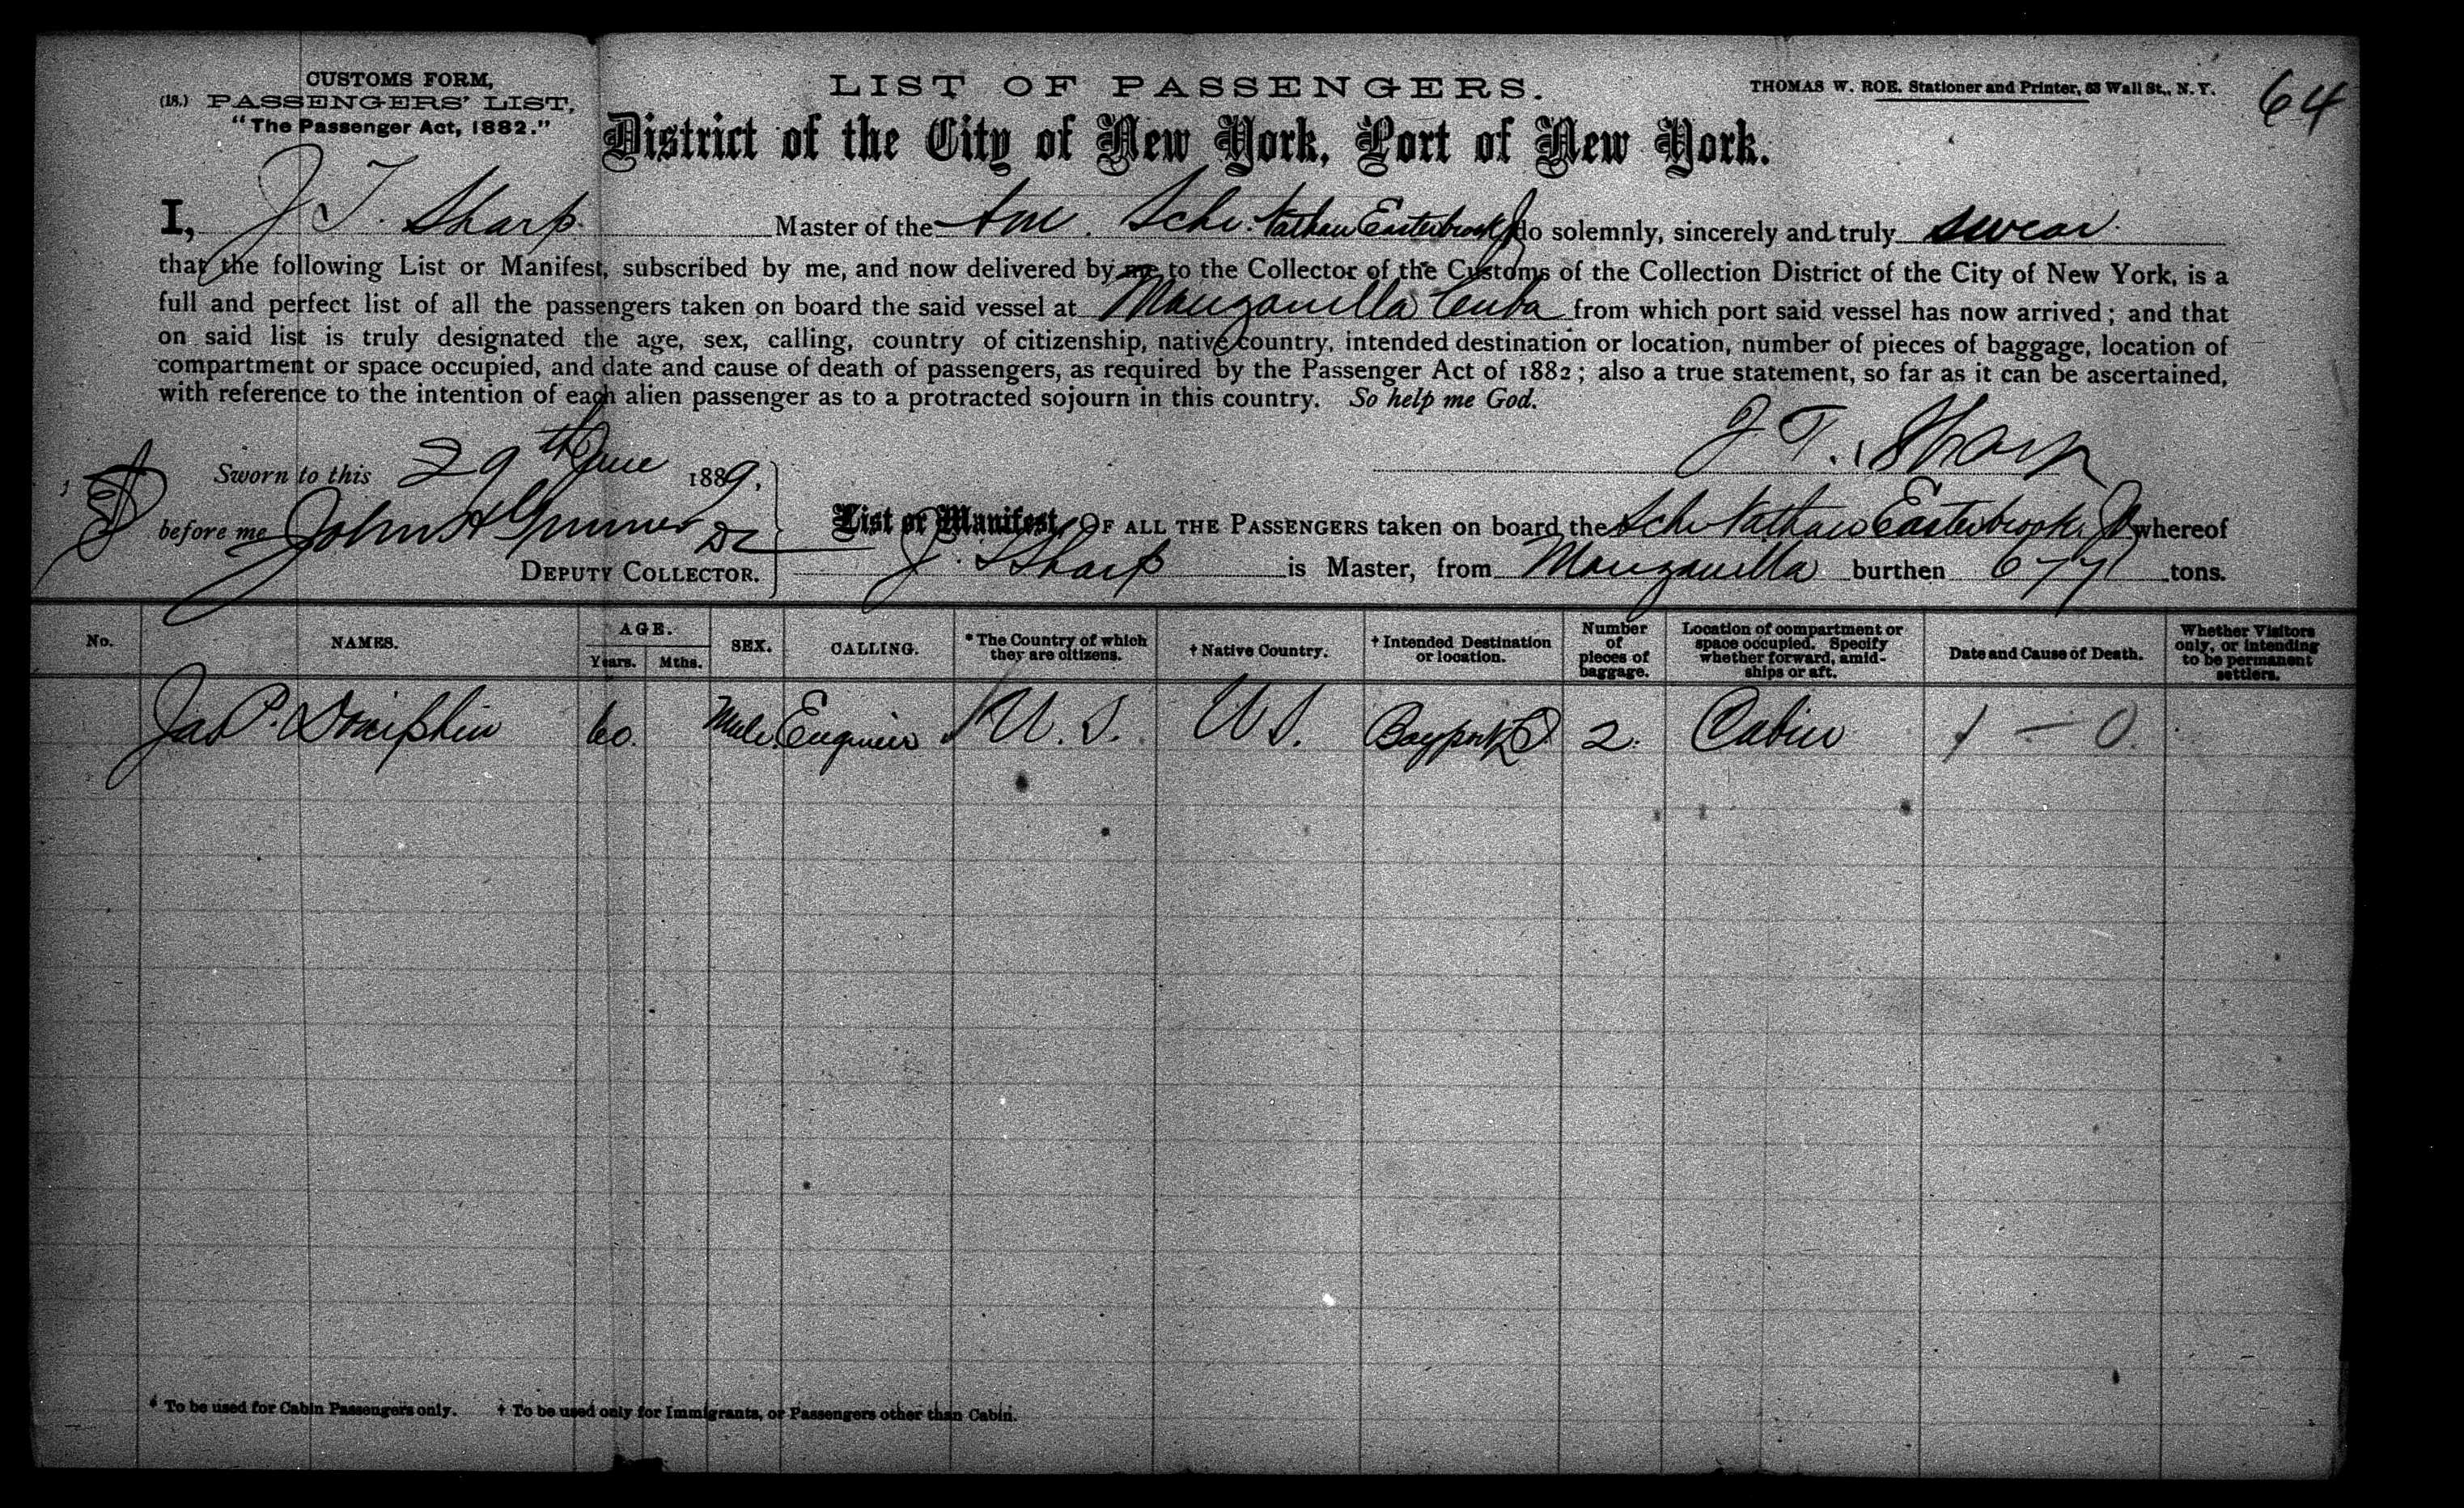 CUSTOMS FORM,
(18.) PASSENGERS' LIST,
"The Passenger Act, 1882."
LIST OF PASSENGERS.
THOMAS W. ROE, Stationer and Printer, 53 Wall St., N. Y.
64
District of the City of New York, Port of New York.
I, J T. Sharp Master of the Am. Schr. Nathan Easterbrook Jr do solemnly, sincerely and truly swear
that the following List or Manifest, subscribed by me, and now delivered by me to the Collector of the Customs of the Collection District of the City of New York, is a
full and perfect list of all the passengers taken on board the said vessel at Manzanilla Cuba from which port said vessel has now arrived; and that
on said list is truly designated the age, sex, calling, country of citizenship, native country, intended destination or location, number of pieces of baggage, location of
compartment or space occupied, and date and cause of death of passengers, as required by the Passenger Act of 1882; also a true statement, so far as it can be ascertained,
with reference to the intention of each alien passenger as to a protracted sojourn in this country. So help me God.
J. T. Sharp
Sworn to this 29th June 1889,
before me John H DC
DEPUTY COLLECTOR.
List or Manifest, OF ALL THE PASSENGERS taken on board the Schr Nathan Easterbrook Jr whereof
J. T Sharp is Master, from Manzanilla burthen 677 tons.
No. NAMES. AGE. Years. Mths. SEX. CALLING. * The Country of which they are citizens. † Native Country. † Intended Destination or location. Number of pieces of baggage. Location of compartment or space occupied. Specify whether forward, amidships or aft. Date and Cause of Death. Whether Visitors only, or intending to be permanent settlers.
Jas P. Doniphin 60. Male Engineer U. S. U S. 2. Cabin 1 — 0.
* To be used for Cabin Passengers only. † To be used only for Immigrants, or Passengers other than Cabin.